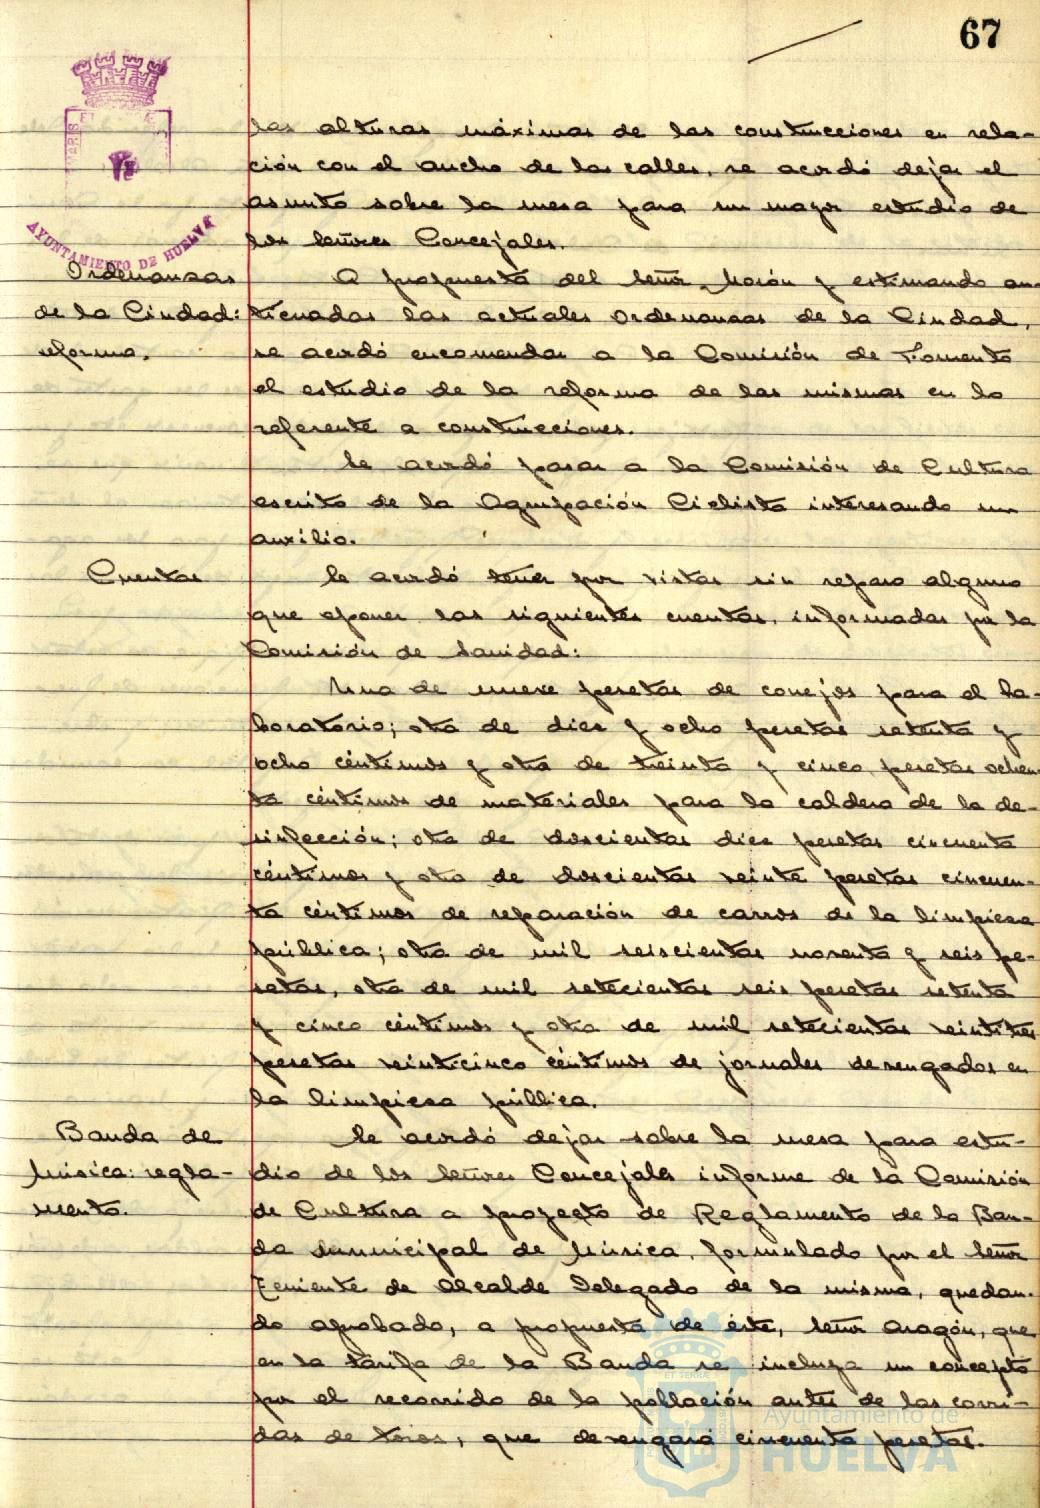 67
las alturas máximas de las construcciones en rela-
ción con el ancho de las calles, se acordó dejar el
asunto sobre la mesa para un mayor estudio de
los señores Concejales.
AYUNTAMIENTO DE HUELVA
Ordenanzas
de la Ciudad:
reforma.
A propuesta del señor Morón y estimando an-
ticuadas las actuales Ordenanzas de la Ciudad,
se acordó encomendar a la Comisión de Fomento
el estudio de la reforma de las mismas en lo
referente a construcciones.
Se acordó pasar a la Comisión de Cultura
escrito de la Agrupación Ciclista interesando un
auxilio.
Cuentas
Se acordó tener por vistas sin reparo alguno
que oponer las siguientes cuentas, informadas por la
Comisión de Sanidad:
Una de nueve pesetas de conejos para el la-
boratorio; otra de diez y ocho pesetas setenta y
ocho céntimos y otra de treinta y cinco pesetas ochen-
ta céntimos de materiales para la caldera de la de-
sinfección; otra de doscientas diez pesetas cincuenta
céntimos y otra de doscientas veinte pesetas cincuen-
ta céntimos de reparación de carros de la limpieza
pública; otra de mil seiscientas noventa y seis pe-
setas, otra de mil setecientas seis pesetas setenta
y cinco céntimos y otra de mil setecientas veintitres
pesetas veinticinco céntimos de jornales devengados en
la limpieza pública.
Banda de
Música: regla-
mento.
Se acordó dejar sobre la mesa para estu-
dio de los señores Concejales informe de la Comisión
de Cultura a proyecto de Reglamento de la Ban-
da Municipal de Música, formulado por el señor
Teniente de Alcalde Delegado de la misma, quedan-
do aprobado, a propuesta de éste, señor Aragón, que
en la tarifa de la Banda se incluya un concepto
por el recorrido de la población antes de las corri-
das de toros, que devengará cincuenta pesetas.
Ayuntamiento de
HUELVA